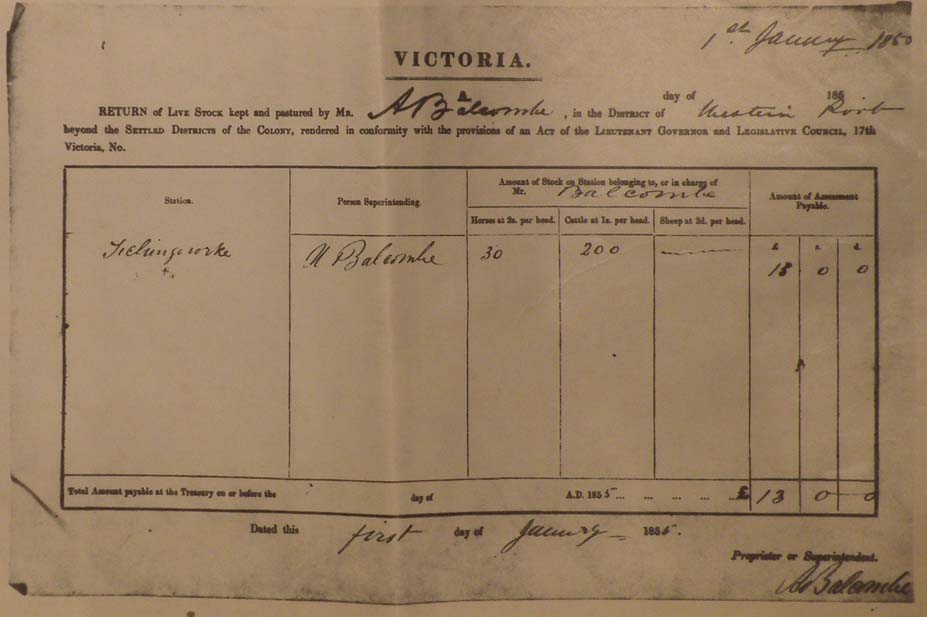 1st. January 1850
VICTORIA.
A day of 185
RETURN of LIVE STOCK kept and pastured by MR. A Balcombe, in the DISTRICT of Western Port
beyond the SETTLED DISTRICTS of the COLONY, rendered in conformity with the provisions of an ACT of the LIEUTENANT GOVERNOR and LEGISLATIVE COUNCIL, 17th
Victoria, No.
Station.
Person Superintending.
Amount of Stock on Station belonging to, or in charge of
Mr. Balcombe
Horses at 2s. per head. Cattle at 1s. per head. Sheep at 2d. per head.
Amount of Assessment
Payable.
£ s. d.
Balcombe 30 200 ——
13 0 0
Total Amount payable at the Treasury on or before the day of A.D. 1855 ... ... ... ... £ 13 0 0
Dated this first day of January 1855.
Proprietor or Superintendent.
A Balcombe